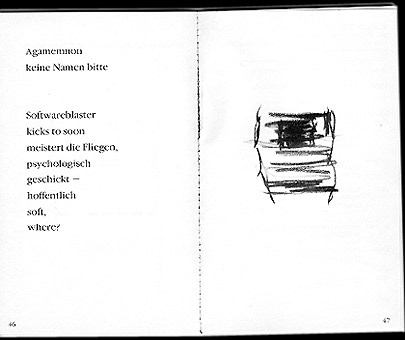 Agamemnon
keine Namen bitte
Softwareblaster
kicks to soon
meistert die Fliegen,
psychologisch
geschickt —
hoffentlich
soft,
where?
46
47